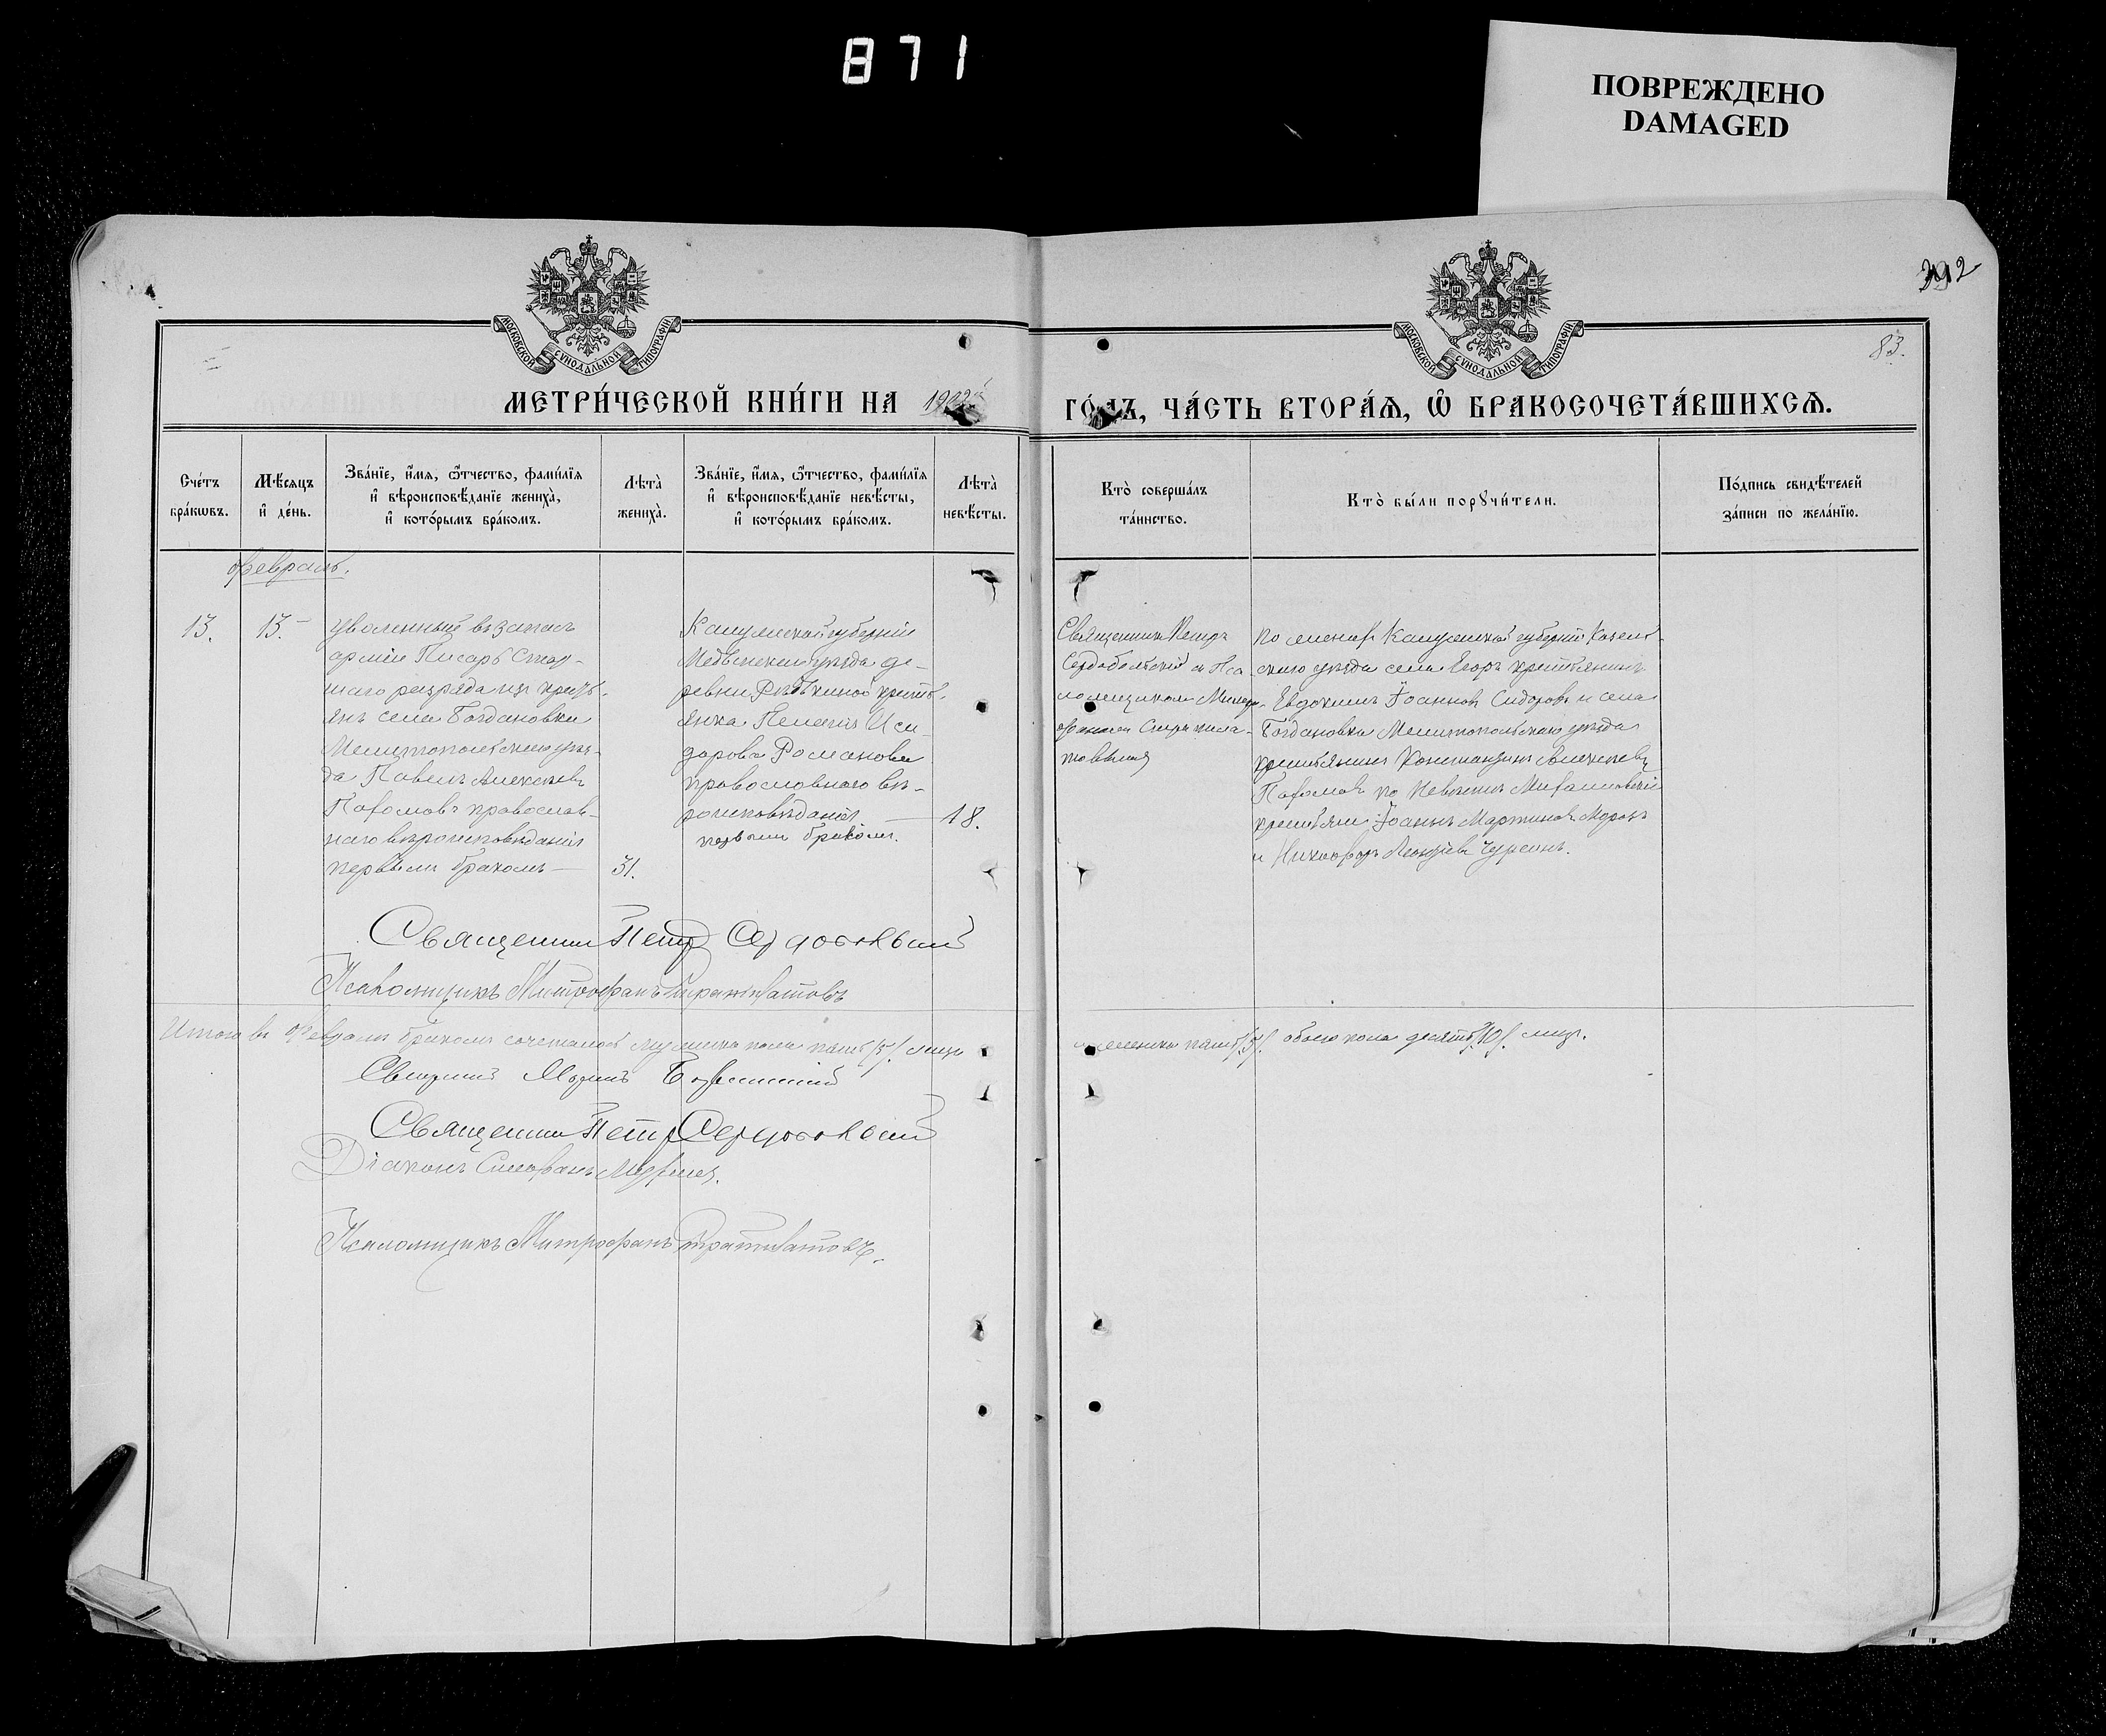 871
ПОВРЕЖДЕНО
DAMAGED
83.
МОСКОВСКОЙ СѴНОДАЛЬНОЙ ТИПОГРАФІИ
МОСКОВСКОЙ СѴНОДАЛЬНОЙ ТИПОГРАФІИ
МЕТРИ́ЧЕСКОЙ КНИ́ГИ НА 1902 ГО́ДЪ, ЧА́СТЬ ВТОРА́Ѧ, Ѽ БРАКОСОЧЕТА́ВШИХСѦ.
Сче́тъ
бра́кѡвъ.
Мѣ́сяцъ
и҆ де́нь.
Зва́нїе, и҆́мя, ѻ҆́тчество, фами́лїя
и҆ вѣроисповѣ́данїе жениха̀,
и҆ кото́рымъ бра́комъ.
Лѣта̀
жениха̀.
Зва́нїе, и҆́мя, ѻ҆́тчество, фами́лїя
и҆ вѣроисповѣ́данїе невѣ́сты,
и҆ кото́рымъ бра́комъ.
Лѣта̀
невѣ́сты.
Кто̀ соверша́лъ
та́инство.
Кто̀ бы́ли порꙋчи́тели.
По́дпись свидѣ́телей
за́писи по жела́нїю.
Февраль.
13.
13.
Уволенный въ запасъ
арміи Писарь Стар-
шаго разряда изъ кресть-
янъ села Богдановки
Мелитопольскаго уѣз-
да Павелъ Алексѣевъ
Пафомовъ православ-
наго вѣроисповѣданія
первымъ бракомъ —
31.
Калужской губерніи
Медынскаго уѣзда де-
ревни Рѣдькиной кресть-
янка Пелагія Иси-
дорова Романова
православнаго вѣ-
роисповѣданія —
первымъ бракомъ.
18.
Священникъ Петръ
Сердобольскій и Пса-
ломщикомъ Митро-
фаномъ
по женихѣ Калужской губерніи Козель-
скаго уѣзда села крестьянинъ
Евдокимъ Іоанновъ Сидоровъ и села
Богдановки Мелитопольскаго уѣзда
крестьянинъ Константинъ Алексѣевъ
Пафомовъ по невѣстѣ
крестьяне Іоаннъ Мартиновъ Морозъ
и Никифоръ
Священникъ Петръ Сердобольскій
Псаломщикъ Митрофанъ
Итого въ Февралѣ бракомъ сочеталось мужскаго пола пять /5/. лицъ женскаго пять /5/. обоего пола десять /10/. лицъ.
Священникъ
Священникъ Петръ Сердобольскій
Діаконъ
Псаломщикъ Митрофанъ